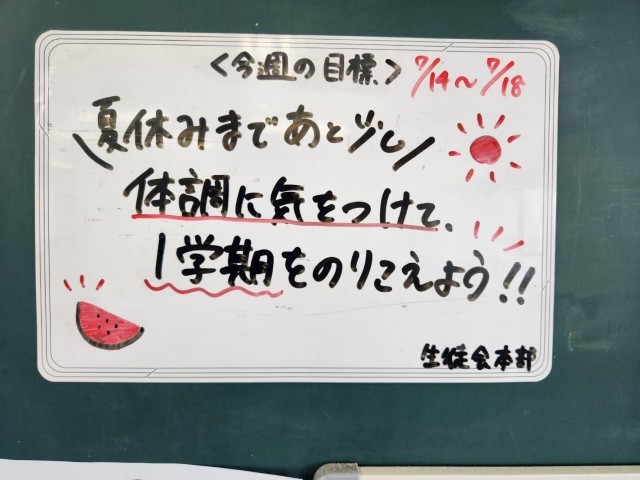 ＜今週の目標＞ 7/14〜7/18
\夏休みまであと少し/
体調に気をつけて、
1学期をのりこえよう!!
生徒会本部